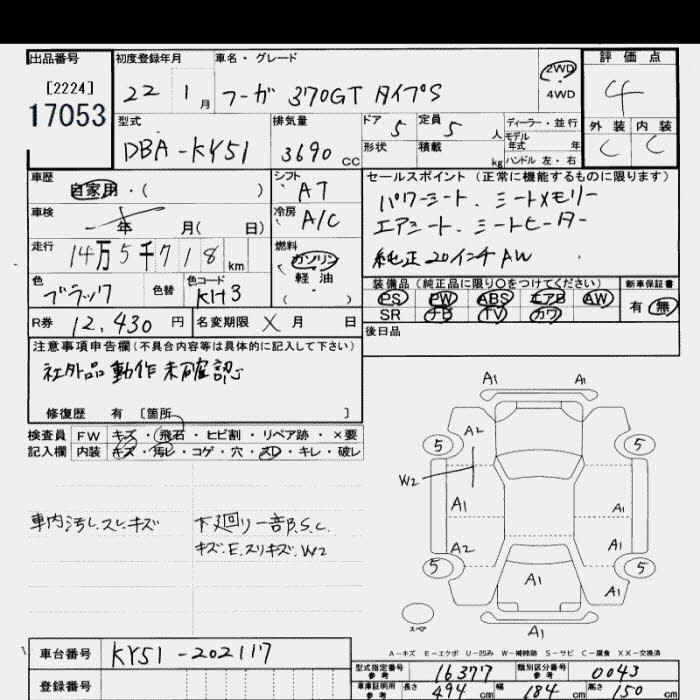 出品番号 初度登録年月 車名・グレード 2WD 4WD 評価点
[2224]
17053
22 1月 フーガ 370GT タイプS 4
型式 排気量 ドア 5 定員 5人 ディーラー・並行 外装 内装
DBA-KY51 3690 cc 形状 積載 kg モデル年式 年 C C
ハンドル 左・右
車歴 自家用・( ) シフト AT セールスポイント (正常に機能するものに限ります)
パワーシート、シートメモリー
車検 年 月( 日) 冷房 A/C エアシート、シートヒーター
走行 14万5千718km 燃料 ガソリン 軽油 ( ) 純正20インチAW
色 ブラック 色替 色コード KH3 装備品 (純正品に限り○をつけてください) 新車保証書
PS PW ABS エアB AW 有 無
SR ナビ TV カワ
R券 12,430円 名変期限 X月 日 後日品
注意事項申告欄(不具合内容等は具体的に記入して下さい)
社外品動作未確認
修復歴 有 [箇所 ]
検査員 FW キズ・飛石・ヒビ割・リペア跡・×要
記入欄 内装 キズ・汚レ・コゲ・穴・スレ・キレ・破レ
車内汚レ.スレ.キズ 下廻り一部B.S.C.
キズ.E.スリキズ.W2
A1 A1
A2
5 5
W2
A1 A1
A2 A1
5 5
A1 A1
スペア
A1
A－キズ E－エクボ U－凹み W－補修跡 S－サビ C－腐食 XX－交換済
車台番号 KY51-202117
型式指定番号 参考 16377 類別区分番号 参考 0043
登録番号 車庫証明用 参考 長さ 494cm 幅 184cm 高さ 150cm